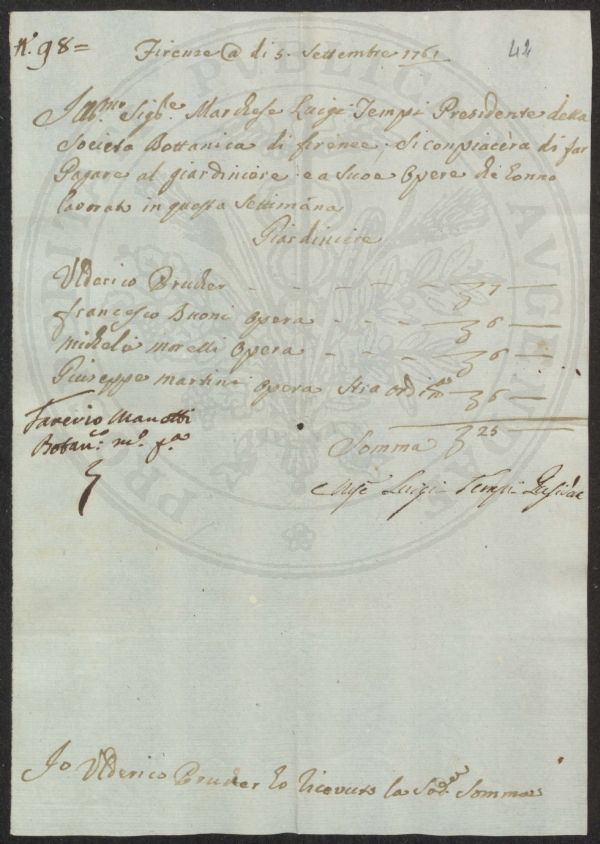 N.° 98=
Firenze @ di 5. Settembre 1761
42
Ill:mo Sig:re Marchese Luigi Tempi Presidente della
Societa Bottanica di firenze, Si conpiacèra di far
Pagare al giardiniere e a Suoe Opere che Conno
lavorato in questa Settimana
Giardiniere
Ulderico Prucker - - - - - - 7 —
francesco Buoni Opera - - - - 6 —
michele morelli Opera - - - - 6 —
Giuseppe martini Opera Straordin:a - 6 —
Somma 25 —
Saverio Manetti
Botan:co m:o p:a
Mse Luigi Tempi Presidte
Io Ulderico Prucker ho Ricevuto la Sod:a Somma
PUBLICAE